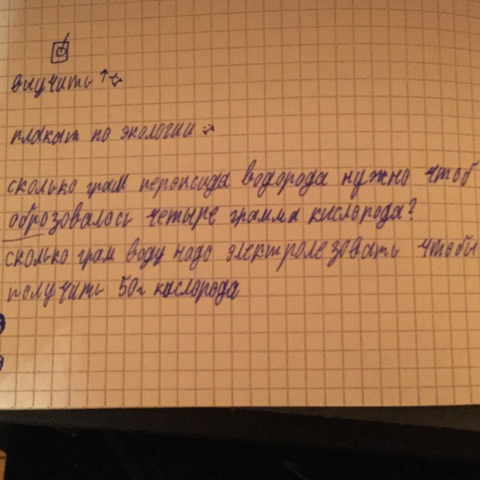 выучить
плакат по экологии
сколько грам пероксида водорода нужно чтоб
образовалось четыре грамма кислорода?
сколько грам воды надо электролезовать чтобы
получить 50г кислорода